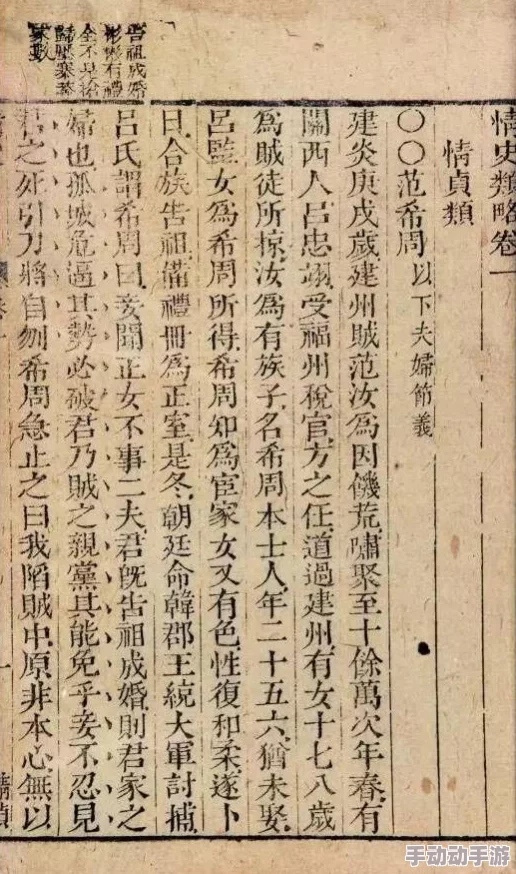 告祖成婚
彬彬有禮
全不見搶
情史類略卷一
情貞類
○○范希周以下夫婦節義
建炎庚戌歲建州賊范汝爲因饑荒嘯聚至十餘萬次年春有
關西人呂忠翊受福州稅官方之任道過建州有女十七八歲
爲賊徒所掠汝爲有族子名希周本士人年二十五六猶未娶
呂監女爲希周所得希周知爲宦家女又有色性復和柔遂卜
日合族告祖備禮冊爲正室是冬朝廷命韓郡王統大軍討捕
呂氏謂希周曰妾聞正女不事二夫君既告祖成婚則君家之
婦也孤城危逼其勢必破君乃賊之親黨其能免乎妾不忍見
君之死引刀將自刎希周急止之曰我陷賊中原非本心無以
情貞
一
手动动手游